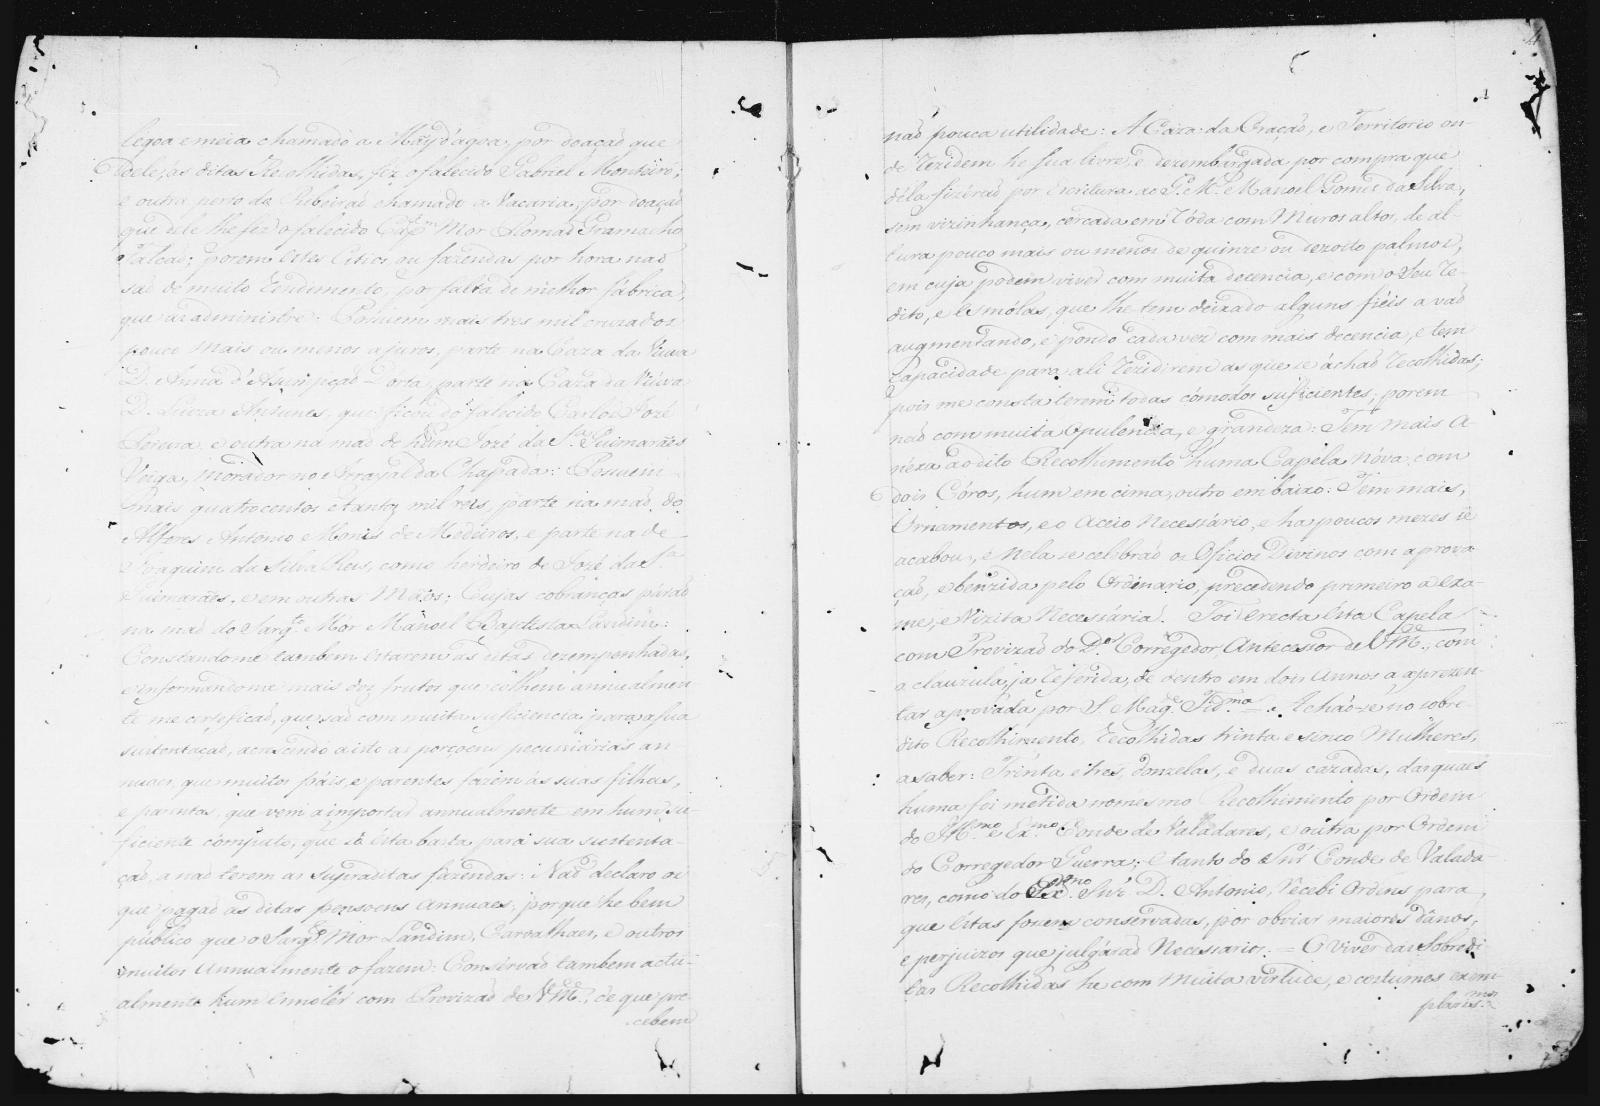 legoa e meia chamado a Mãy d'agoa, por doaçaõ que
dele, ás ditas Recolhidas, fez o falecido Gabriel Monteiro;
e outra perto do Ribeiraõ chamado a Vacaria, por doaçaõ
que dele lhe fez o falecido Cap.m Mor Romaõ Gramacho
Falcaõ; porem estes Citios ou fazendas por hora naõ
saõ de muito Rendimento, por falta de melhor fábrica,
que as administre. Possuem mais tres mil cruzados
pouco mais ou menos a juros, parte na Caza da Viuva
D. Anna d'Asumpçaõ Dorta, parte na Caza da Viúva
D. Luiza Antunes, que ficou do falecido Carlos Jozé
Pereira, e outra na maõ de hum Jozé da S.a Guimarães
Veiga, morador no Arrayal da Chapada: Possuem
mais quatrocentos e tantos mil reis, parte na maõ do
Alferes Antonio Moniz de Medeiros, e parte na de
Joaquim da Silva Reis, como herdeiro de Jozé da S.a
Guimarães, e em outras Mãos; Cujas cobranças páraõ
na maõ do Sarg.to Mór Manoel Baptista Landim:
Constandome tambem estarem as ditas dezempenhadas,
e informandome mais dos frutos que colhem annualmen
te me certeficaõ, que saõ com muita suficiencia para a sua
sustentaçaõ, acrescendo a isto as porçoens pecuniárias an
nuaes, que muitos páis, e parentes fazem ás suas filhas,
e parentas, que vem a importar annualmente em hum su-
ficiente cómputo, que só esta basta para sua sustenta-
çaõ, a naõ terem as supraditas fazendas: Naõ declaro os
que pagaõ as ditas pensoens annuaes, porque he bem
público que o Sarg.to Mor Landim, Carvalhaes, e outros
muitos annualmente o fazem: Conservaõ tambem actu-
almente hum Emolér com Provizaõ de V.M.ce, e que pre
cebem
naõ pouca utilidade: A Caza da Oraçaõ, e Territorio on-
de rezidem he sua livre, e dezembargada por compra que
déla fizeraõ por escritura ao P.e M.e Manoel Gomes da Silva,
sem vizinhança, cercada em tóda com Muros altos, de al-
tura pouco mais ou menos de quinze ou dezoito palmos,
em cuja podem viver com muita decencia, e com o seu re-
dito, e esmólas, que lhe tem deixado alguns fiéis a vaõ
augmentando, e pondo cada vez com mais decencia, e tem
Capacidade para ali rezidirem as que se áchaõ recolhidas;
pois me consta terem todas cómodos suficientes; porem
naõ com muita opulencia, e grandeza: Tem mais a-
néxa ao dito Recolhimento huma Capéla Nóva, com
dois Córos, hum em cima, outro em baixo: Tem mais,
Ornamentos, e o aceio Necessário, e ha poucos mezes se
acabou, e nela se celebraõ os Oficios Divinos com aprova
çaõ, e benzida pelo Ordinario, precedendo primeiro a exa-
me, e Vizita Necessária. Foi erecta esta Capela
com Provizaõ do D.or Corregedor, Antecessor de V.M.ce, com
a clauzula, ja referida, de dentro em dois annos a aprezen-
tar aprovada por S. Mag.e Fid.ma = Achaõ-se no sobre-
dito Recolhimento, Recolhidas trinta e sinco Mulheres,
a saber: Trinta e tres, donzelas, e duas cazadas, das quaes
huma foi metida no mesmo Recolhimento por Ordem
do Ill.mo e Ex.mo Conde de Valadares, e outra por Ordem
do Corregedor Guerra; e tanto do Snr. Conde de Valada-
res, como do Ex.mo Snr. D. Antonio, recebi Ordens para,
que estas fossem conservadas, por obviar maiores danos,
e perjuizos que julgáraõ Necessario: = O viver das sobredi-
tas Recolhidas he com muita virtude, e costumes exem-
plaris.mos